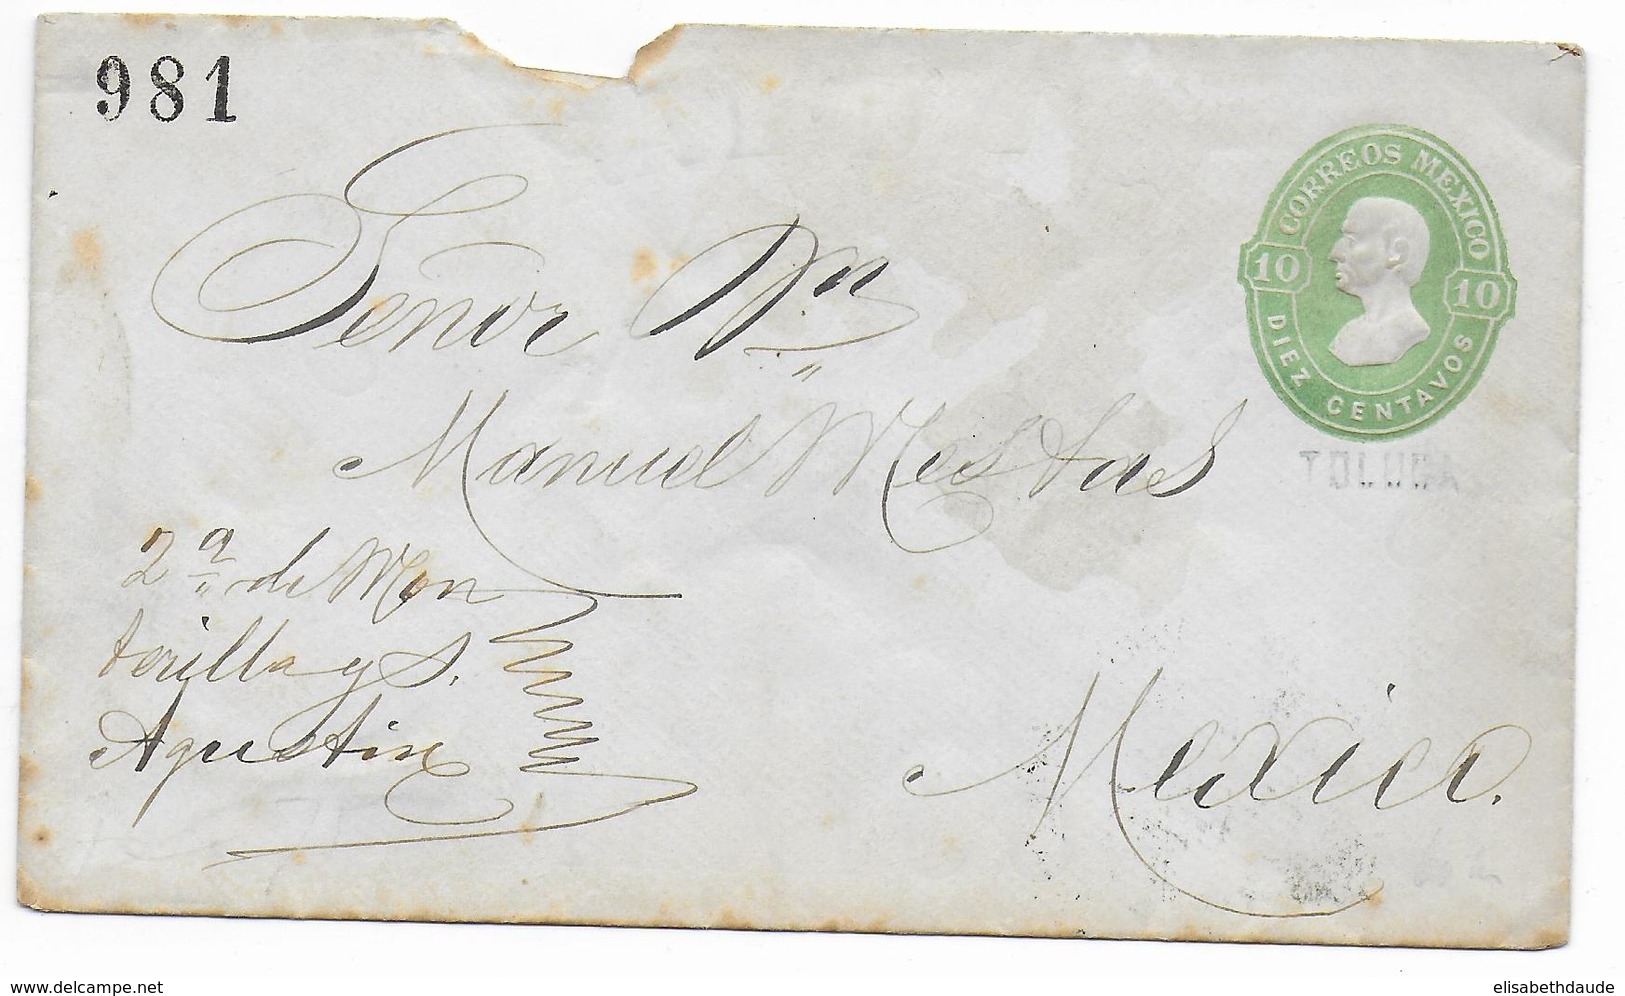 981
CORREOS MEXICO
10 10
DIEZ CENTAVOS
TOLUCA
Señor Dn
Manuel Mestas
2a de Mon
terilla y S.
Agustin
Mexico.
www.delcampe.net
elisabethdaude